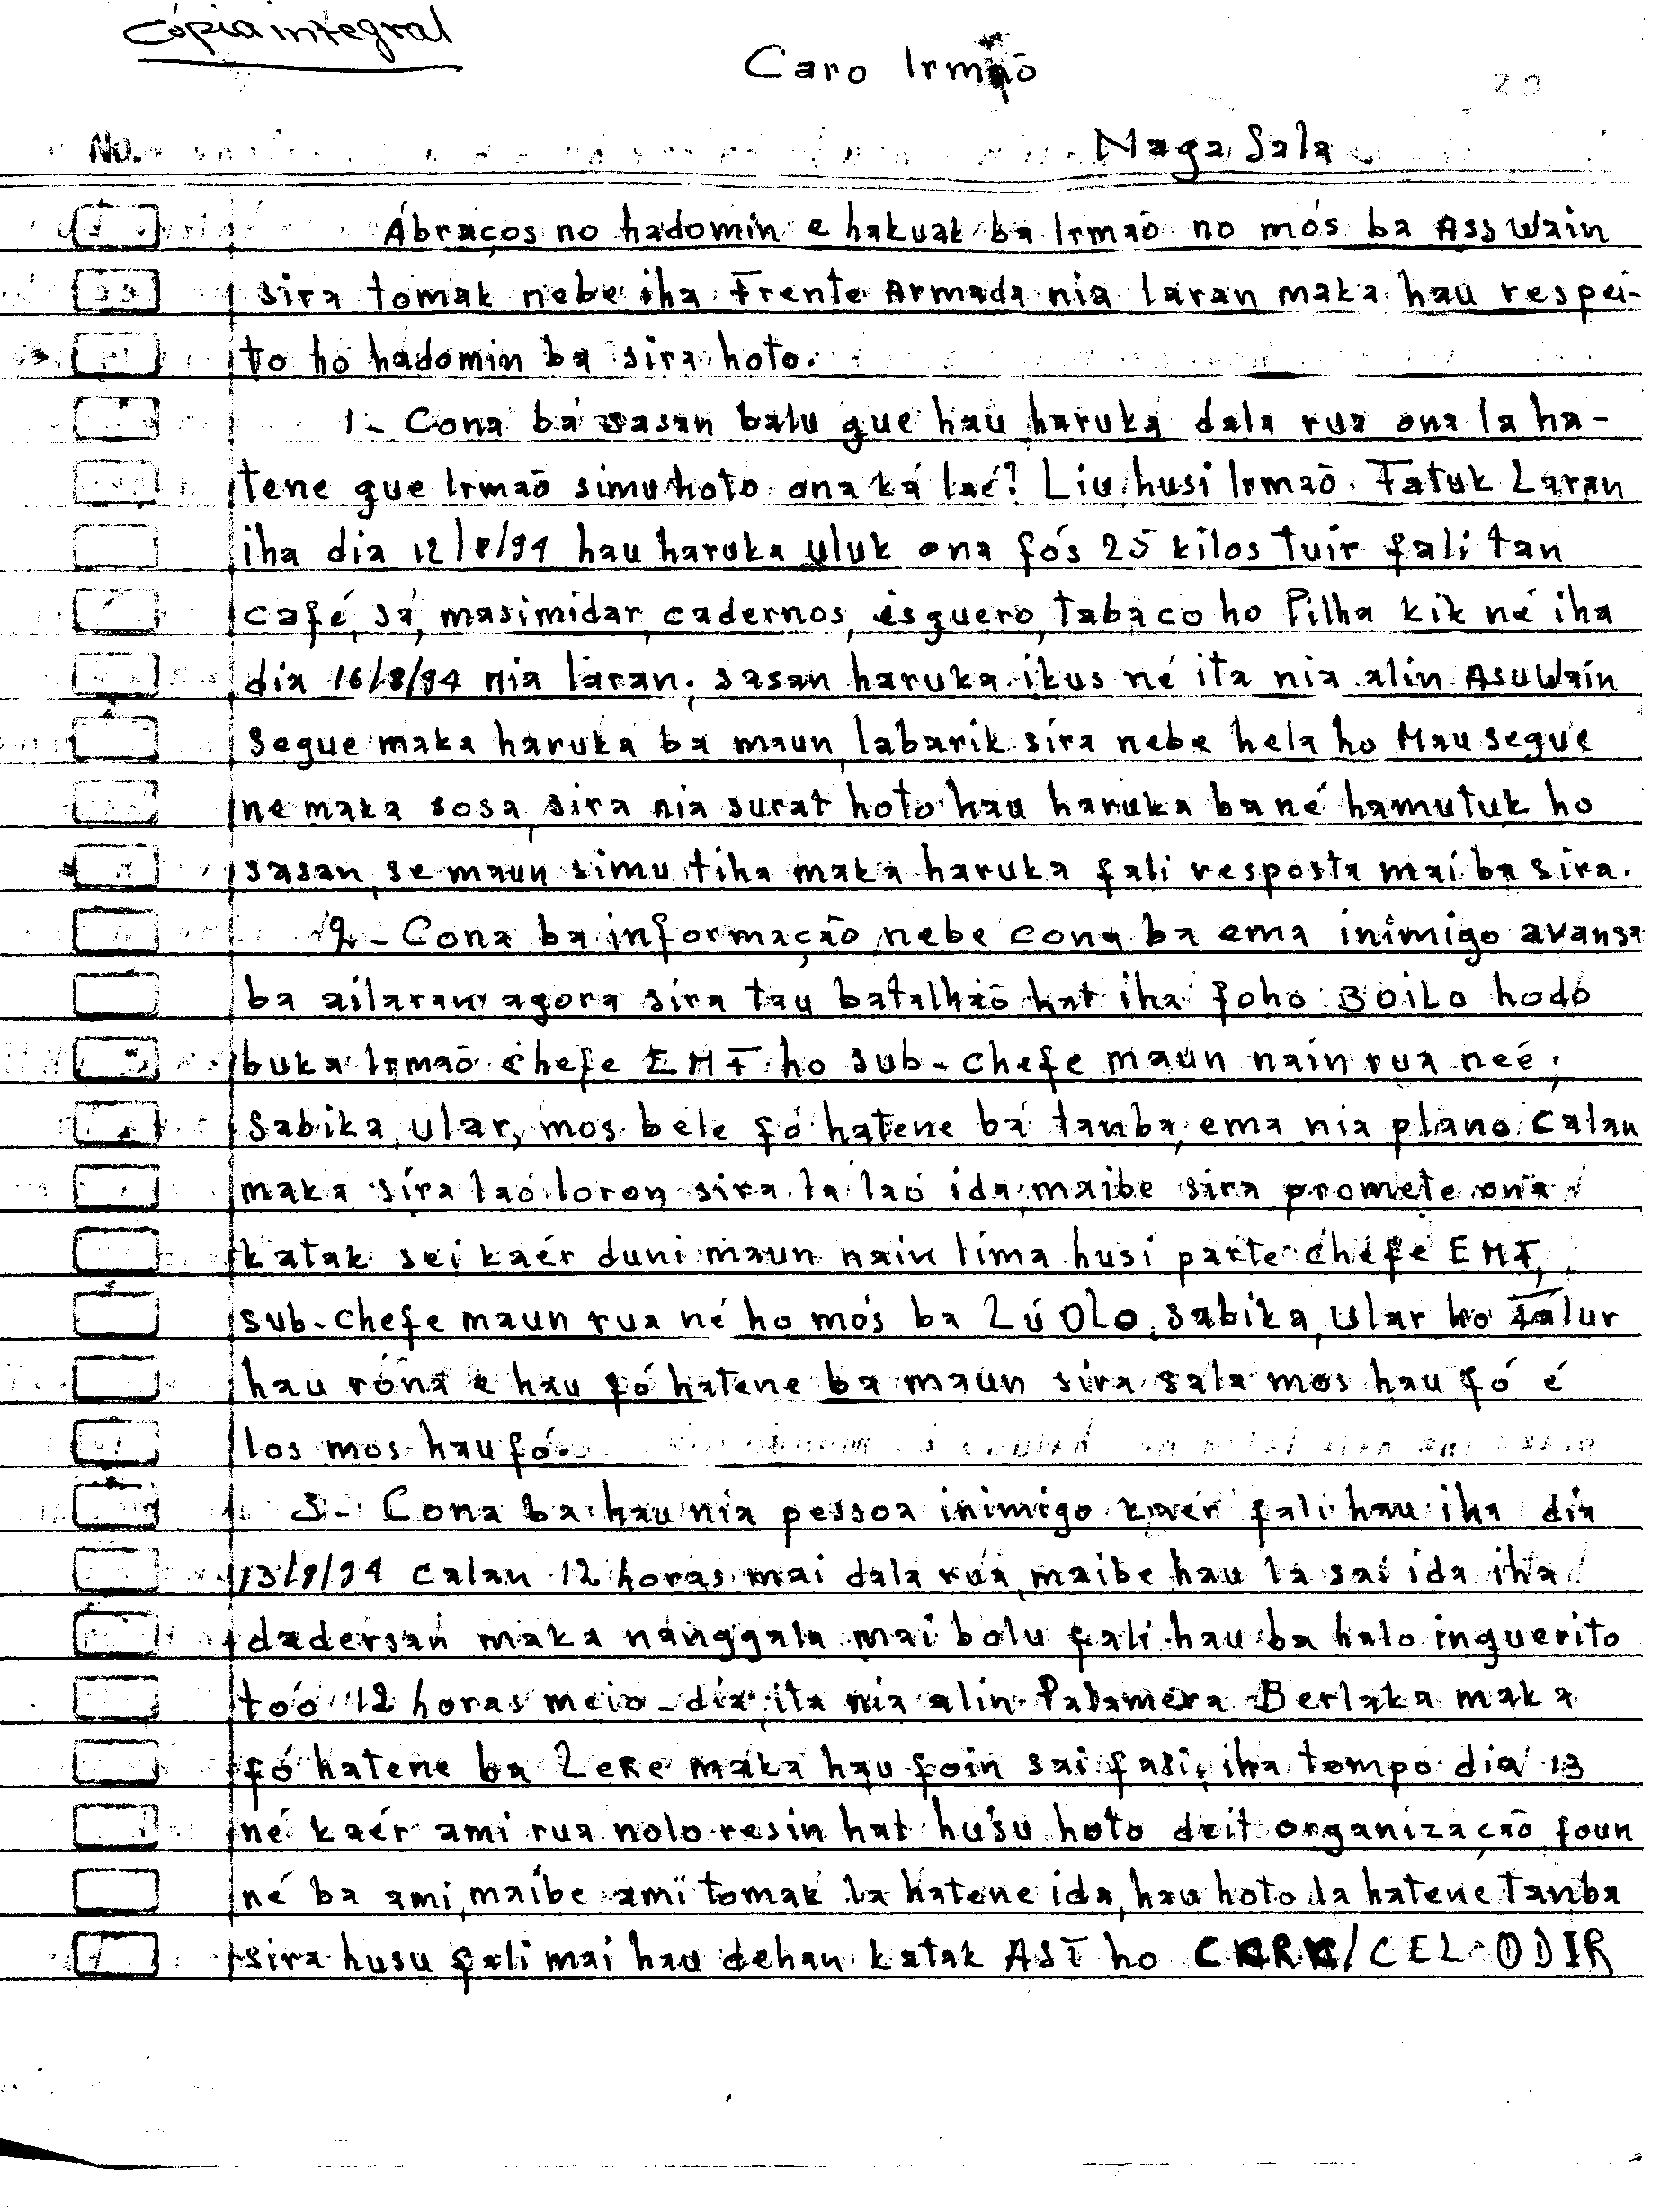 Cópia integral
Caro Irmaõ
20
No.
Maga Sala
Abraços no hadomin e hakuak ba Irmaõ no mós ba Ass Wain
sira tomak nebe iha Frente Armada nia laran maka hau respei-
to ho hadomin ba sira hoto.
1- Cona ba sasan balu que hau haruka dala rua ona la ha-
tene que Irmaõ simu hoto ona ká laé? Liu husi Irmaõ Fatuk Laran
iha dia 12/8/94 hau haruka uluk ona fós 25 kilos tuir fali tan
café, sá, masimidar, cadernos, ésguero, tabaco ho Pilha kik né iha
dia 16/8/94 nia laran; sasan haruka ikus né ita nia alin Asuwain
Segue maka haruka ba maun, labarik sira nebe hela ho Mausegue
ne maka sosa, sira nia surat hoto hau haruka ba né hamutuk ho
sasan, se maun simu tiha maka haruka fali resposta mai ba sira.
2- Cona ba informaçaõ nebe cona ba ema inimigo avansa
ba ailaran agora sira tau batalhaõ hat iha foho BOILO hodo
buka Irmaõ chefe EMF ho sub-chefe maun nain rua neé;
Sabika, ular, mos bele fó hatene bá tanba, ema nia plano Calan
maka sira laó loron, sira la laó ida, maibe sira promete ona
katak sei kaér duni maun nain lima husi parte chefe EMF,
sub-chefe maun rua né ho mós ba Lú Olo, Sabika, Ular ho Falur
hau rona e hau fó hatene ba maun sira sala mos hau fó é
los mos hau fó.
3- Cona ba hau nia pessoa inimigo kaér fali hau iha dia
13/8/94 calan 12 horas mai dala rua, maibe hau la sai ida iha
dadersan maka nanggala mai bolu fali hau ba halo inguerito
toó 12 horas meio-dia, ita nia alin Padamera Berlaka maka
fó hatene ba Lere maka hau foin sai fali, iha tempo dia 13
né kaér ami rua nolo resin hat husu hoto deit organizaçaõ foun
né ba ami, maibe ami tomak la hatene ida, hau hoto la hatene tanba
sira husu fali mai hau dehan katak AST ho CKRK/CEL ODIR